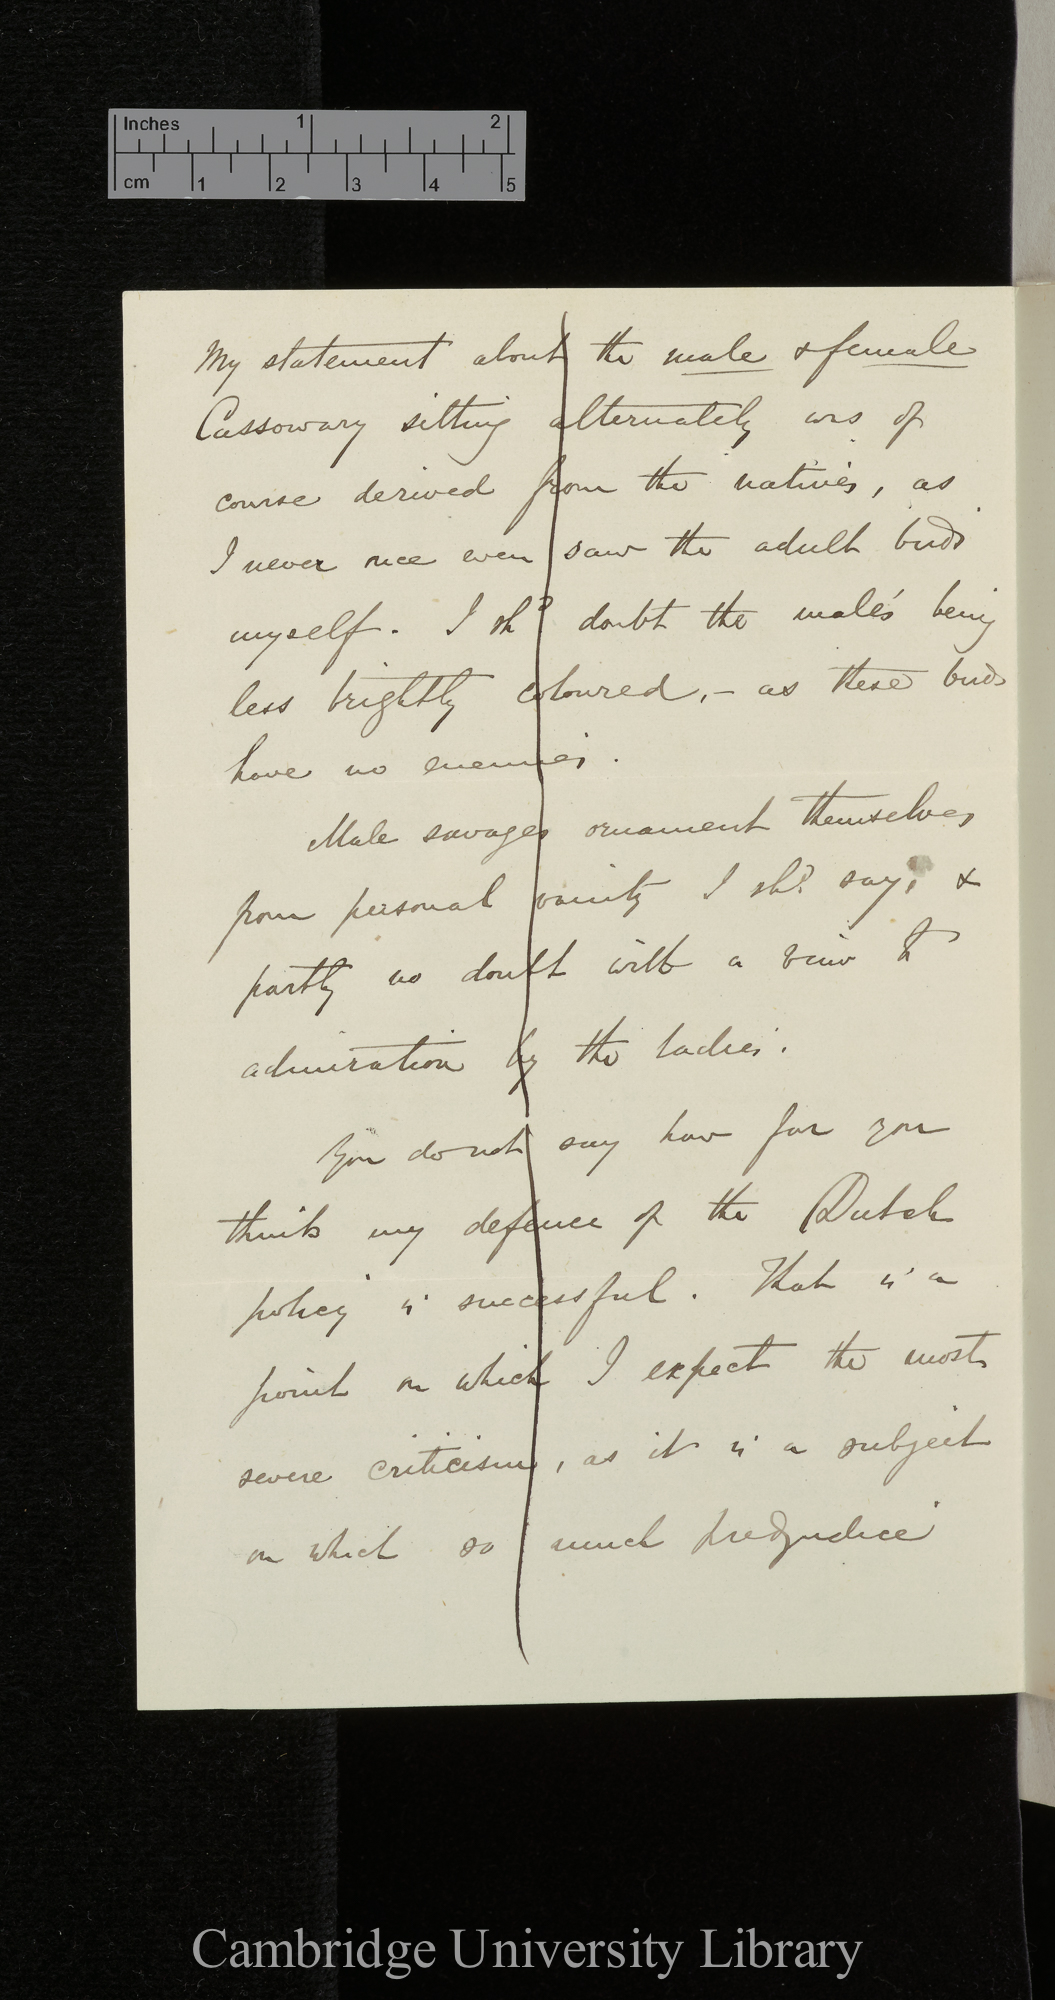 Inches 1 2
cm 1 2 3 4 5
My statement about the male & female
Cassowary sitting alternately was of
course derived from the natives, as
I never once even saw the adult birds
myself. I shd doubt the male's being
less brightly coloured,– as these birds
have no enemies.
Male savages ornament themselves
from personal vanity I shd. say, &
partly no doubt with a view to
admiration by the ladies.
You do not say how far you
think my defence of the Dutch
policy is successful. That is a
point on which I expect the most
severe criticism, as it is a subject
on which so much predjudice
Cambridge University Library